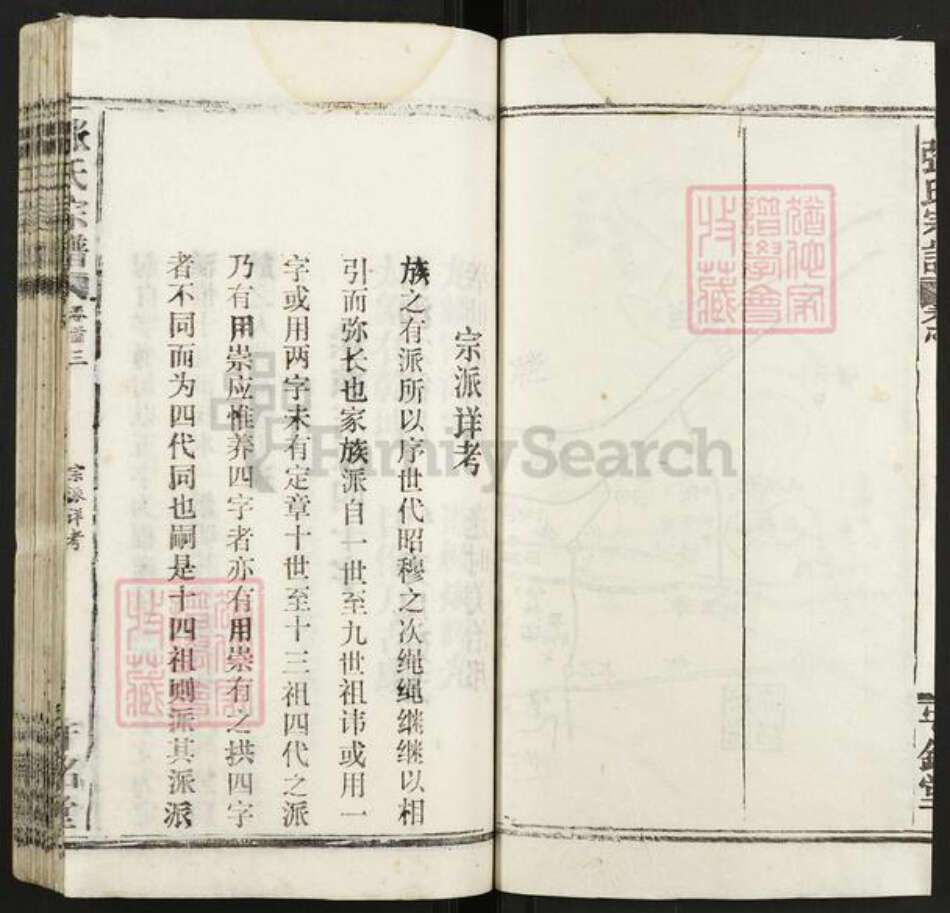 张氏宗谱
宗派详考
族之有派所以序世代昭穆之次绳绳继继以相
引而弥长也家族派自一世至九世祖讳或用一
字或用两字未有定章十世至十三祖四代之派
乃有用崇应惟养四字者亦有用崇有之拱四字
者不同而为四代同也嗣是十四祖则派其派派
张氏宗谱
卷首三
宗派详考
FamilySearch
谱学会
收藏
谱学会
收藏